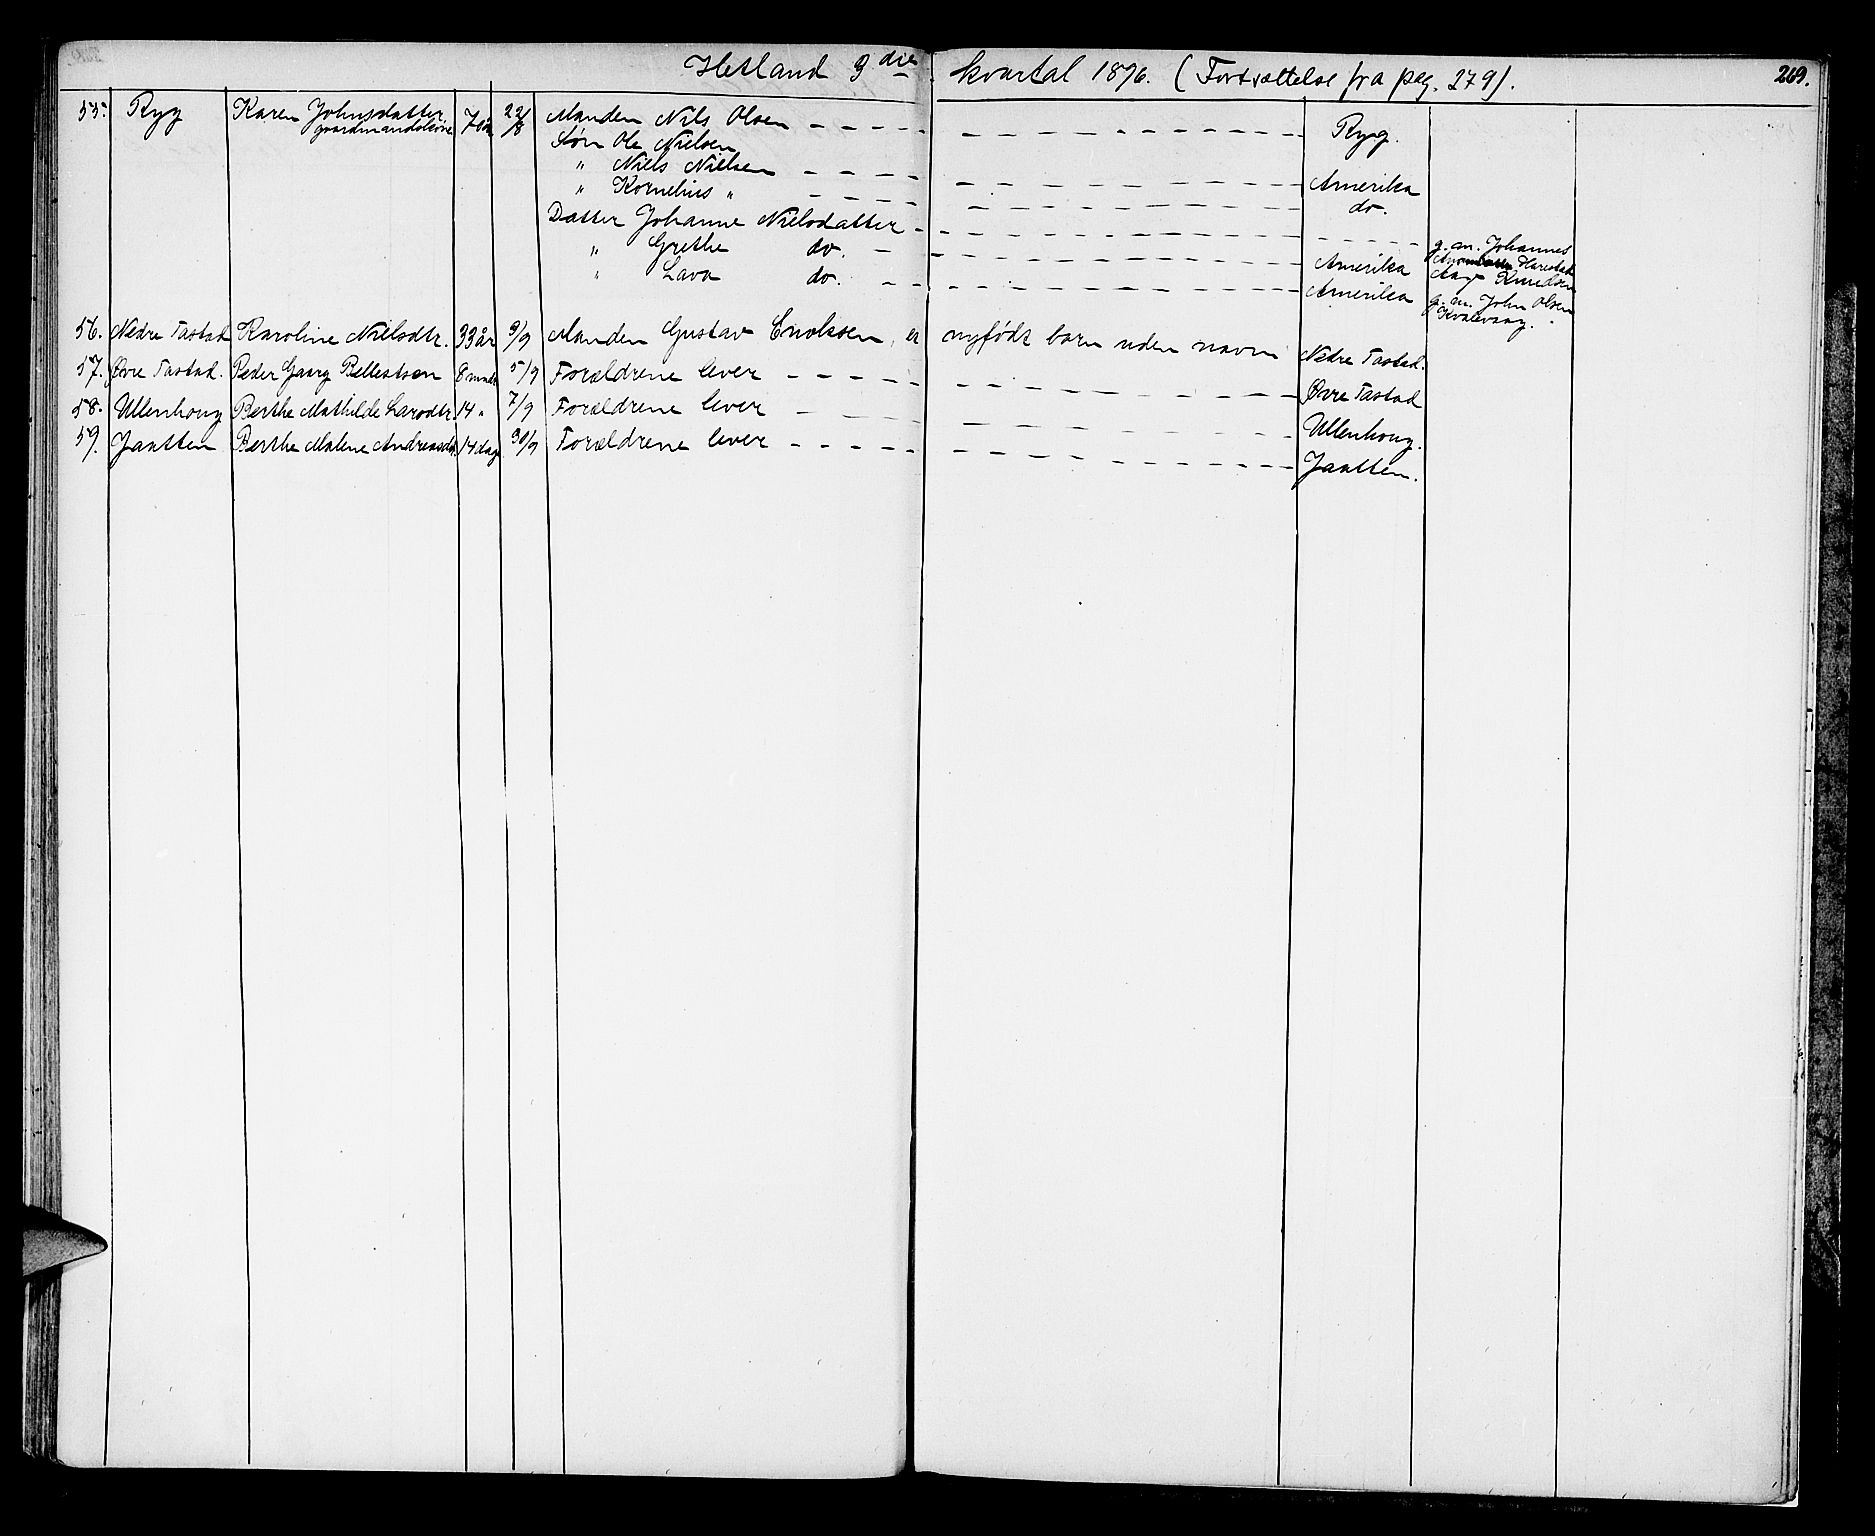 Hetland 3die kvartal 1896. (Fortsættelse fra pag. 279).
269.
55. Ryg Karen Johnsdatter, 22/8 Manden Nils Olsen – – – – – – – – – Ryg.
gaardmandskone
Søn Ole Nielsen
" Niels Nielsen – – – – – – – – – Amerika
" Kornelius " – – – – – – – – – do.
Datter Johanne Nielsdatter – – – – – – – – – g. m. Johannes
Harestad
" Grethe do. – – – – – – – – Amerika Aage Knudsen
" Lava do. – – – – – – – – Amerika g. m. John Olsen
Kvalevaag.
56. Nedre Tastad Karoline Nielsdtr. 33 år 9/9 Manden Gustav Enoksen, et nyfødt barn uden navn Nedre Tastad.
57. Øvre Tastad. Peder Gaarg Bellestsen 8 mndr 5/9 Forældrene lever – – – – – – – – – Øvre Tastad
58. Ullenhoug Berthe Mathilde Larsdtr. 14 " 7/9 Forældrene lever – – – – – – – – – Ullenhoug.
59. Jaatten Berthe Malene Andreasdtr. 14 dage 30/9 Forældrene lever – – – – – – – – – Jaatten.